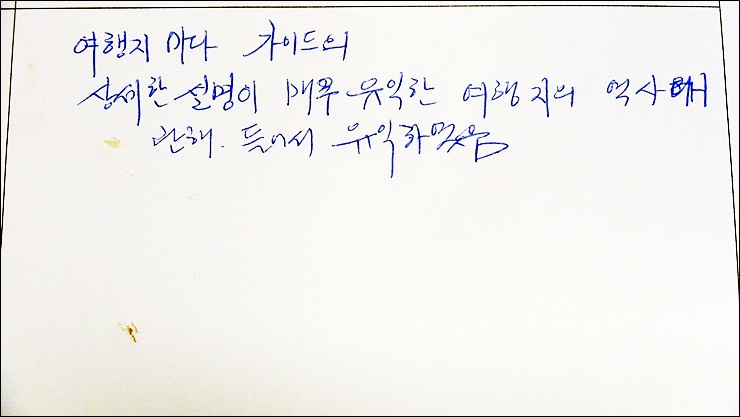 여행지 마다 가이드의
상세한 설명이 매우 유익한 여행지의 역사에
관해. 들어서 유익하였음